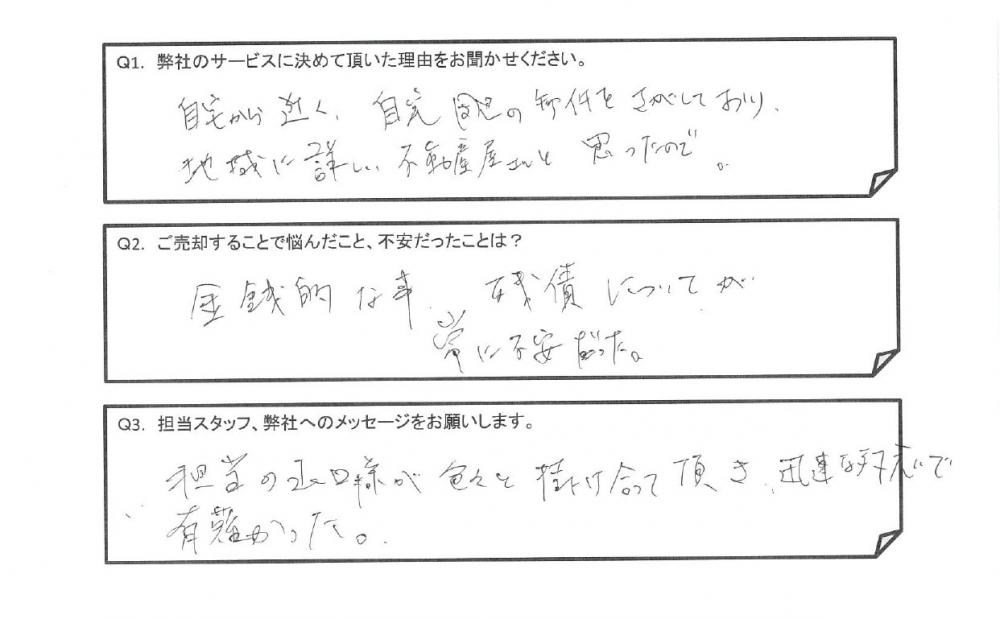 Q1. 弊社のサービスに決めて頂いた理由をお聞かせください。
自宅から近く、自宅周辺の物件をさがしており、
地域に詳しい不動産屋さんと思ったので。
Q2. ご売却することで悩んだこと、不安だったことは？
金銭的な事、残債についてが
常に不安だった。
Q3. 担当スタッフ、弊社へのメッセージをお願いします。
担当の様が色々と掛け合って頂き、迅速な対応で
有難かった。